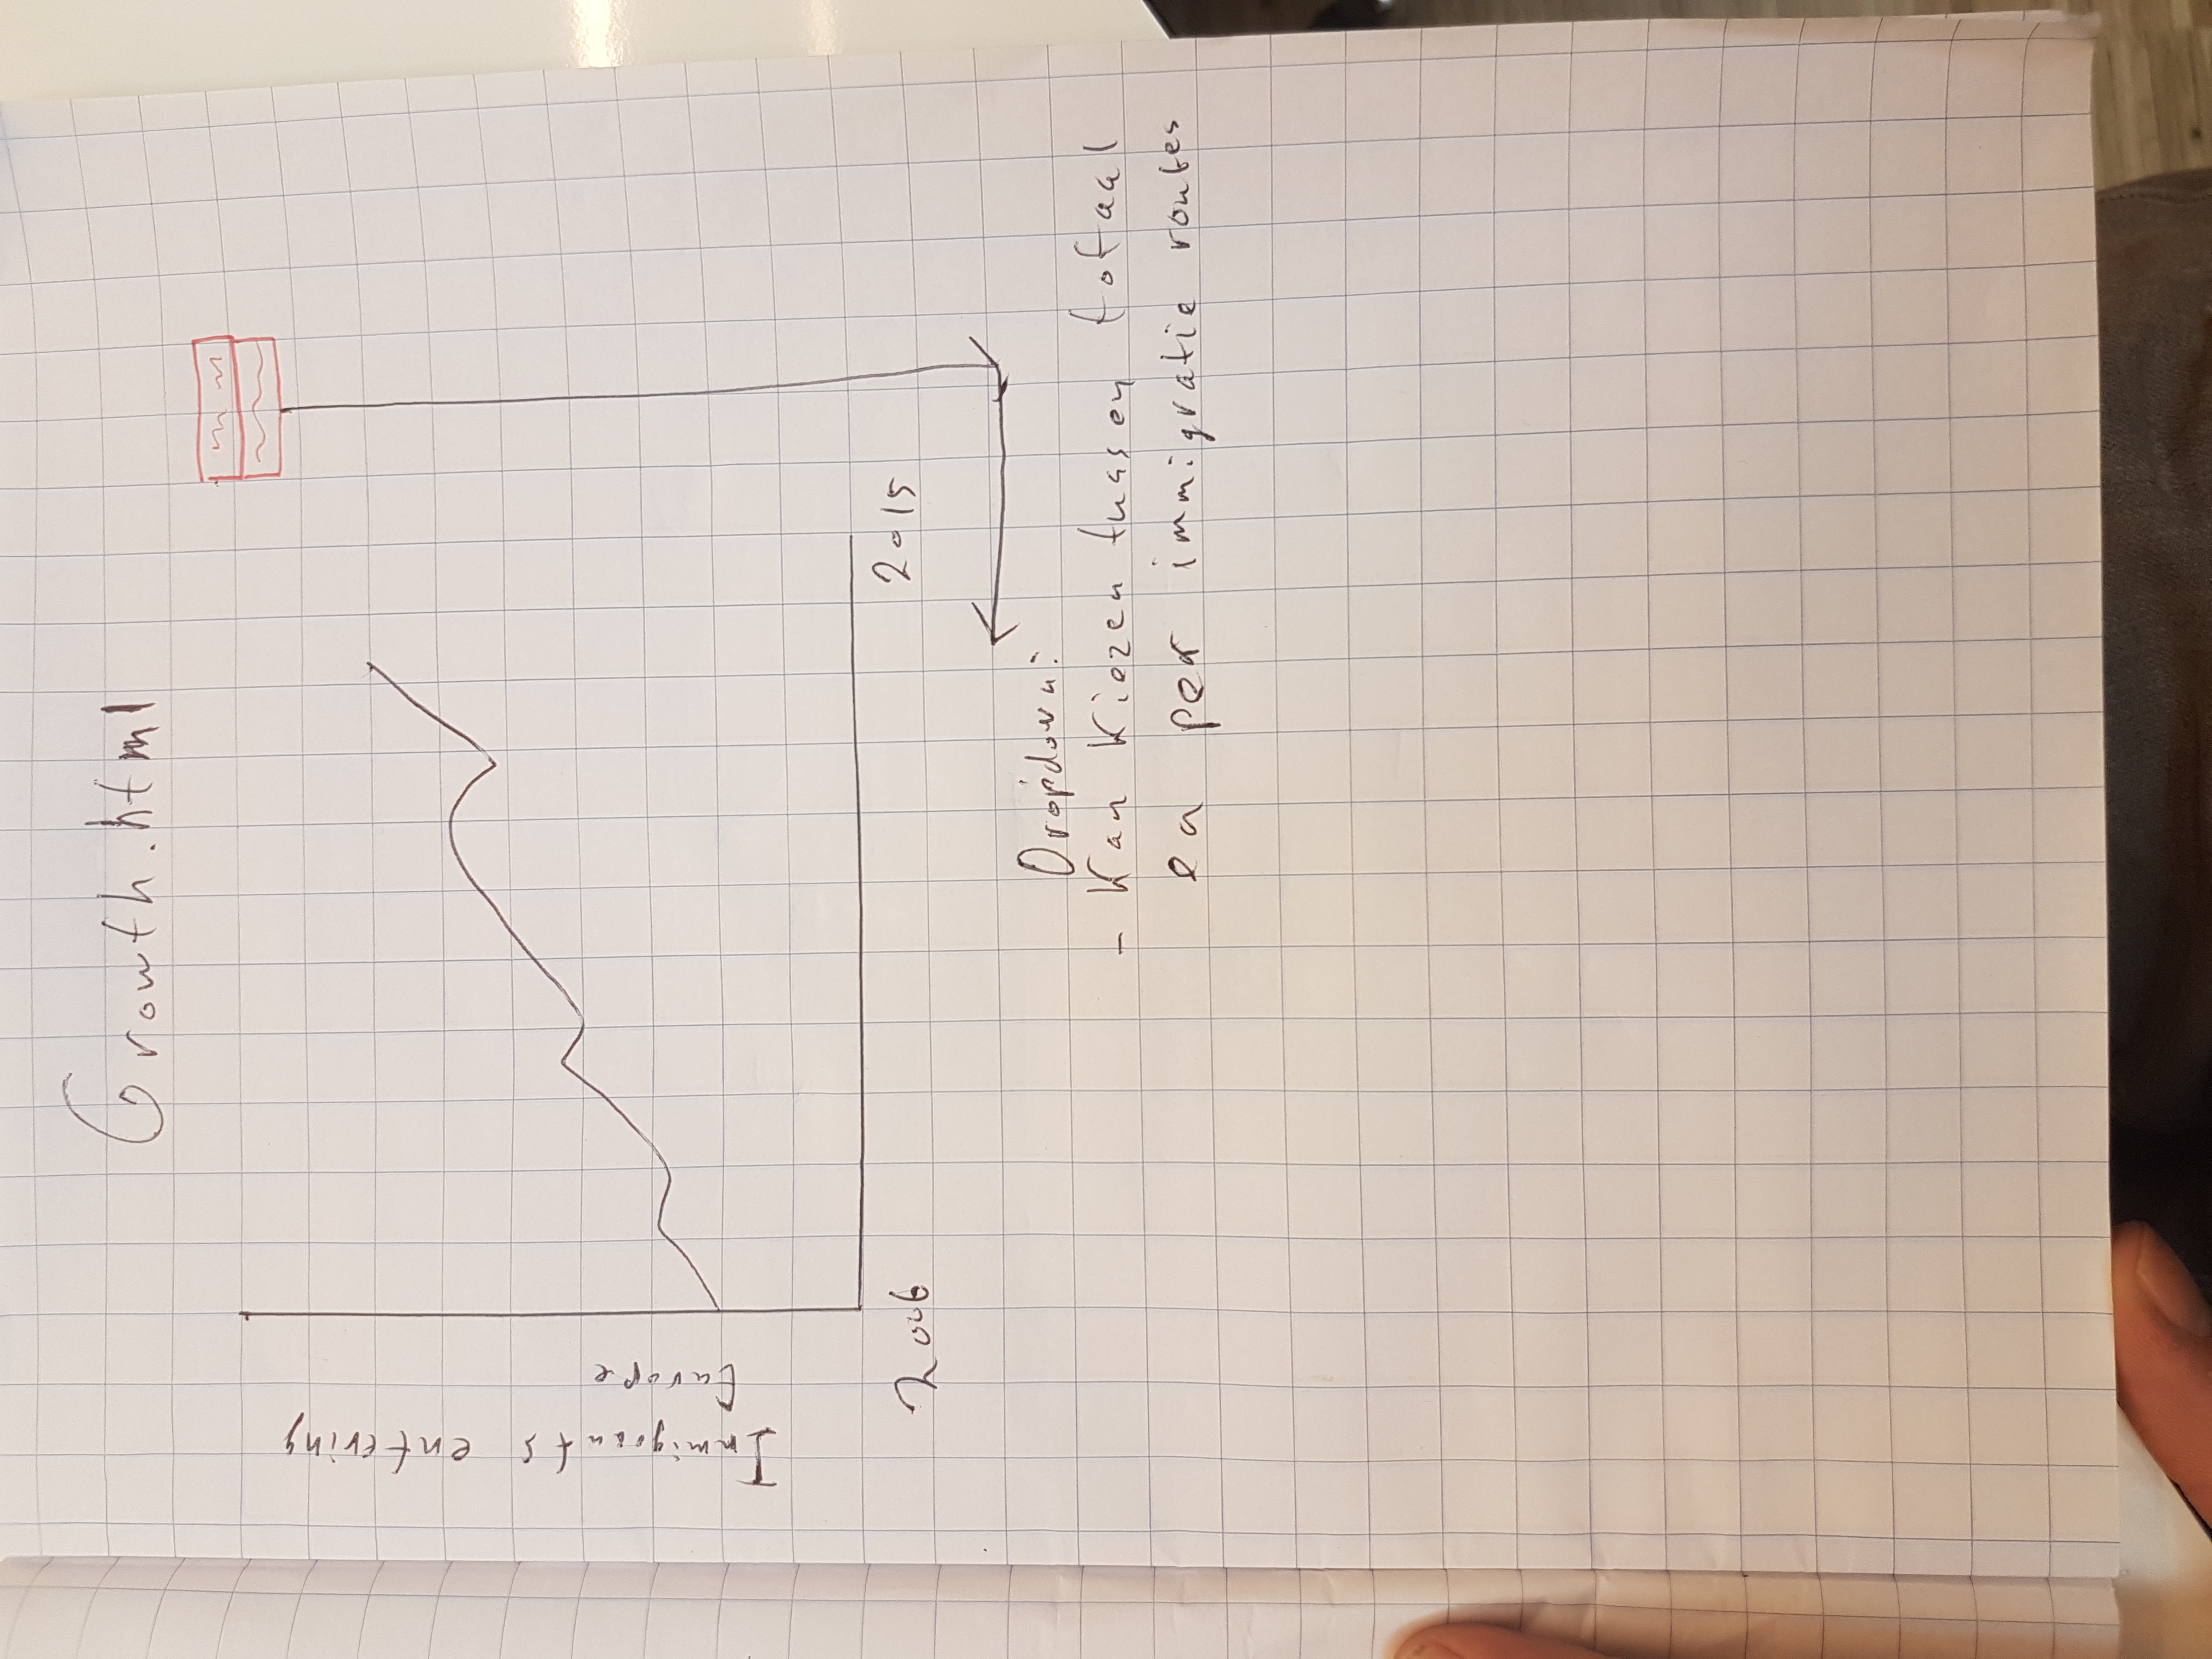 Growth.html
Immigrants entering
Europe
2006
2015
Dropdown:
- Kan Kiezen tussen totaal
en per immigratie routes